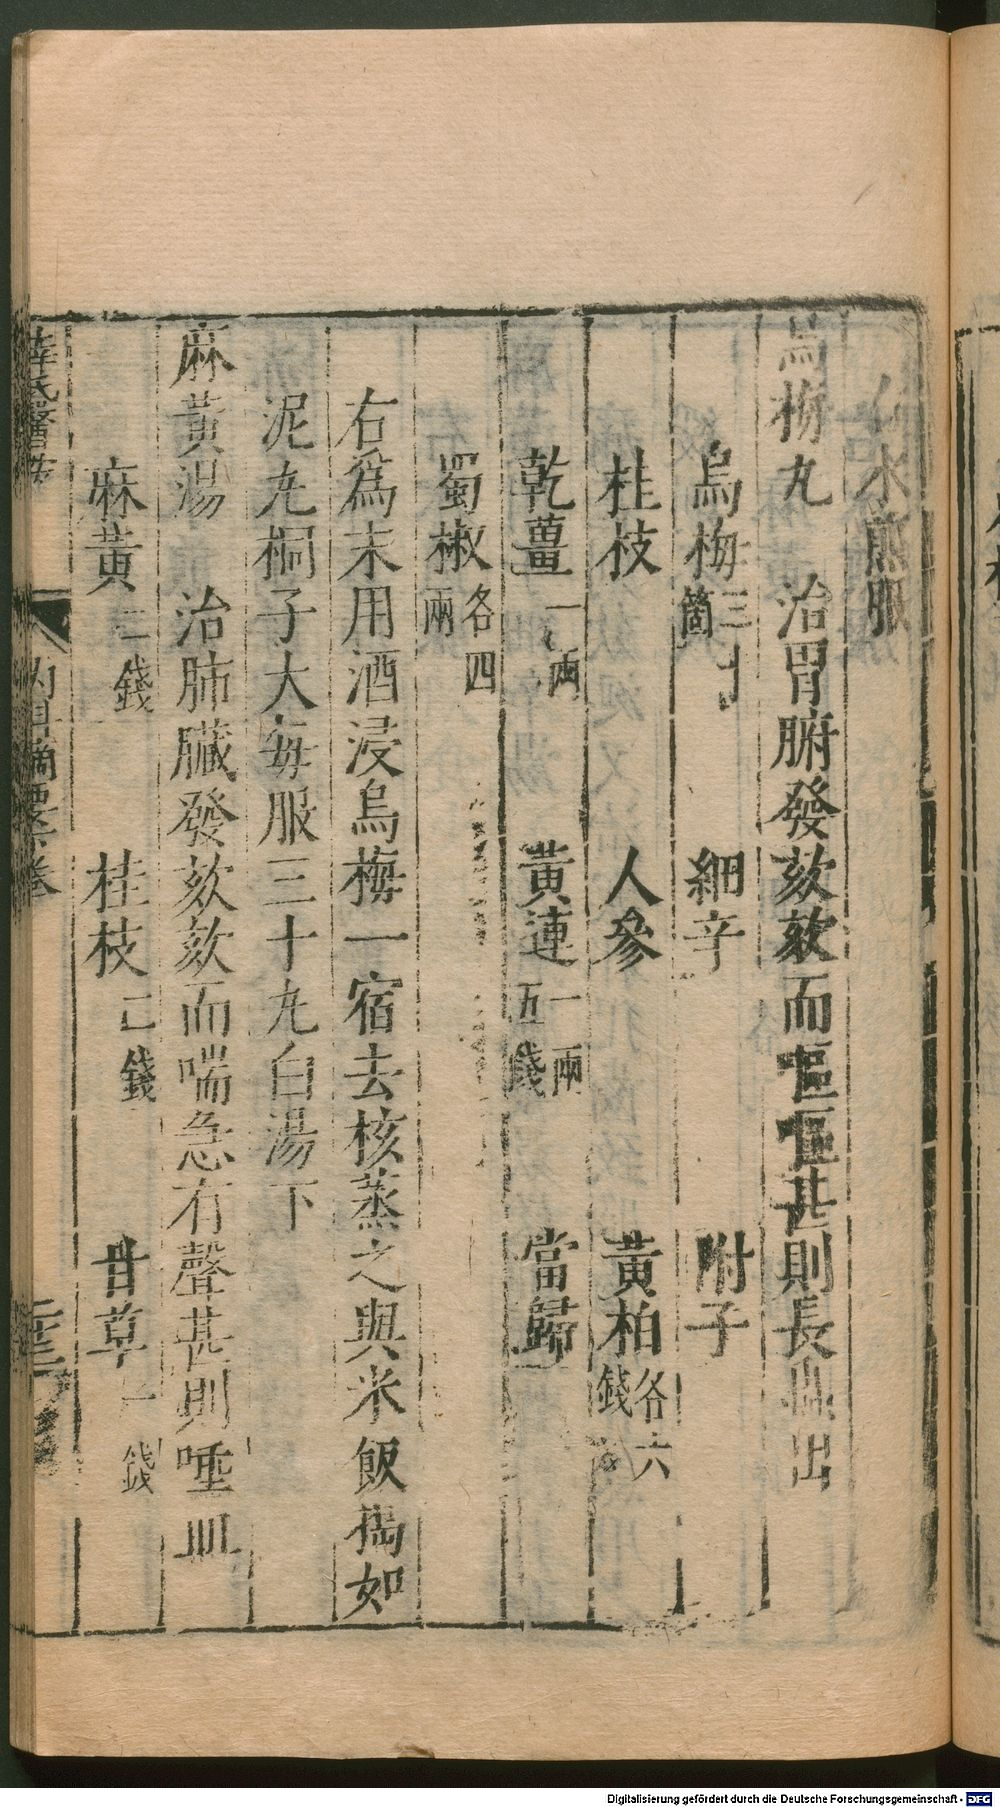 右水煎服
烏梅丸　治胃腑發欬欬而嘔嘔甚則長蟲出
烏梅三十箇　細辛　附子
桂枝　人參　黃柏各六錢
乾薑一兩　黃連一兩五錢　當歸
蜀椒各四兩
右爲末用酒浸烏梅一宿去核蒸之與米飯搗如
泥丸桐子大每服三十丸白湯下
麻黃湯　治肺臟發欬欬而喘急有聲甚則唾血
麻黃三錢　桂枝二錢　甘草一錢
薛氏醫按　內科摘要下卷
Digitalisierung gefördert durch die Deutsche Forschungsgemeinschaft - DFG